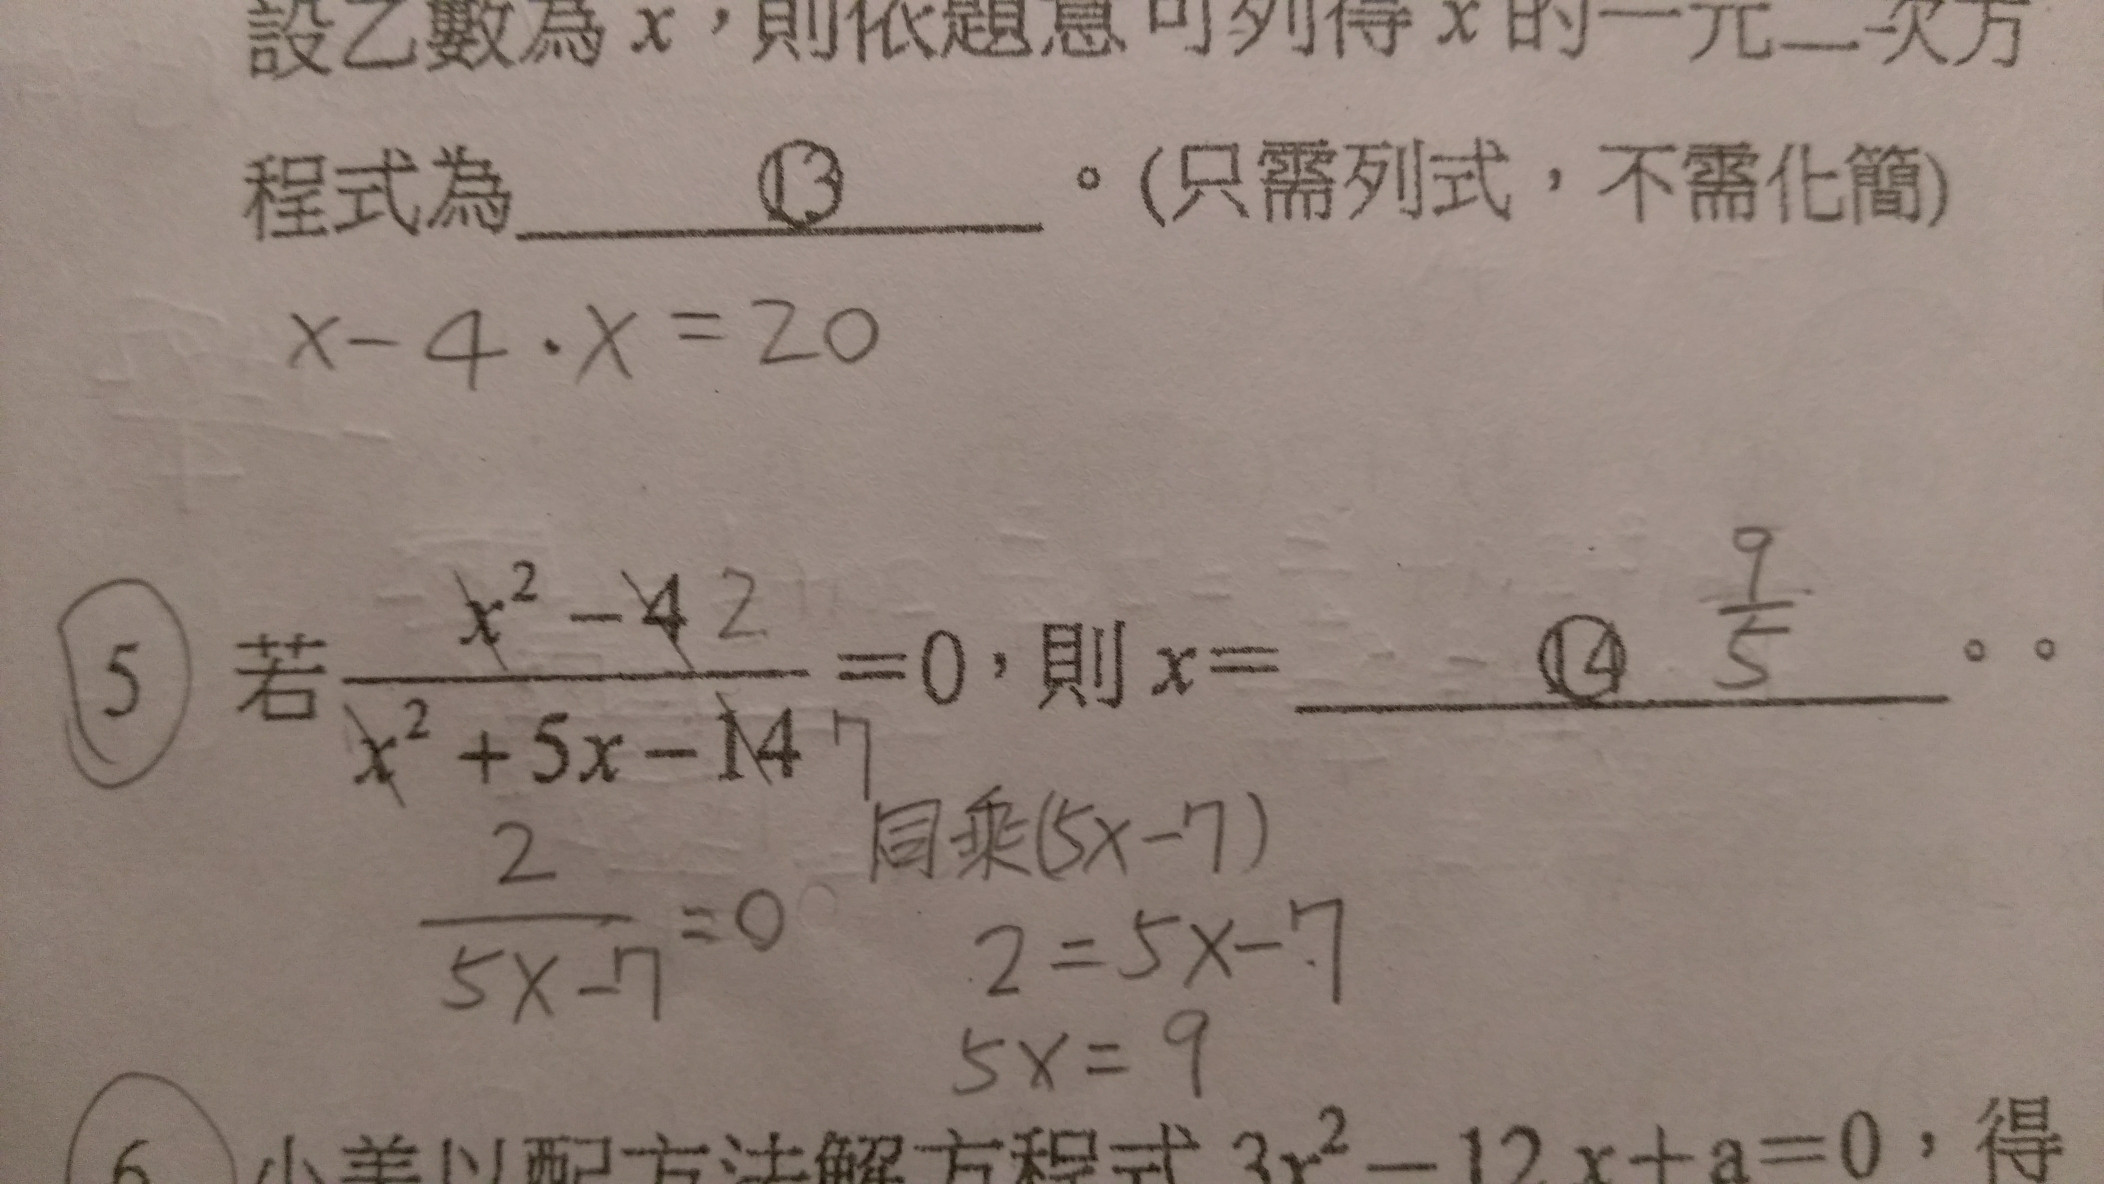 設乙數為 x，則依題意可列得 x 的一元二次方
程式為 ⑬ 。(只需列式，不需化簡)
x-4·x=20
5 若 x²-4 2 / x²+5x-14 7 =0，則 x= ⑭ 9/5 。。
同乘(5x-7)
2/5x-7 =0
2=5x-7
5x=9
6 小美以配方法解方程式 3x²-12x+a=0，得